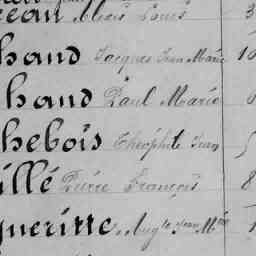 eau Alexis Louis 3
hand Jacques Jean Marie 10
hand Paul Marie
hebois Théophile Jean
illé Pierre François 8
queritte Aug<sup>te</sup> Jean M<sup>ie</sup>